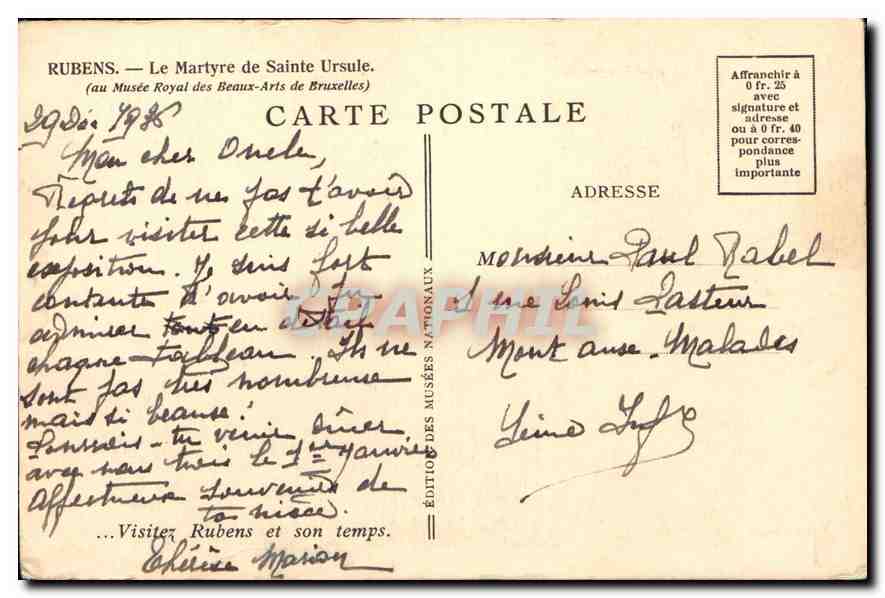 RUBENS. — Le Martyre de Sainte Ursule.
(au Musée Royal des Beaux-Arts de Bruxelles)
CARTE POSTALE
29 Déc 1936
Mon cher Oncle,
Regrets de ne pas t'avoir
pour visiter cette si belle
exposition. Je suis fort
contente d'avoir pu
admirer en détail
chaque tableau. Ils ne
sont pas très nombreuse
mais si beause!
Pourrais-tu venir dîner
avec nous trois le 1er Janvier
Affectueux souvenirs de
ta nièce.
...Visitez Rubens et son temps.
Thérèse
ÉDITION DES MUSÉES NATIONAUX
Affranchir à
0 fr. 25
avec
signature et
adresse
ou à 0 fr. 40
pour corres-
pondance
plus
importante
ADRESSE
Monsieur Paul Rabel
rue Louis Pasteur
Mont aux Malades
Seine Infre
CPAPHIL